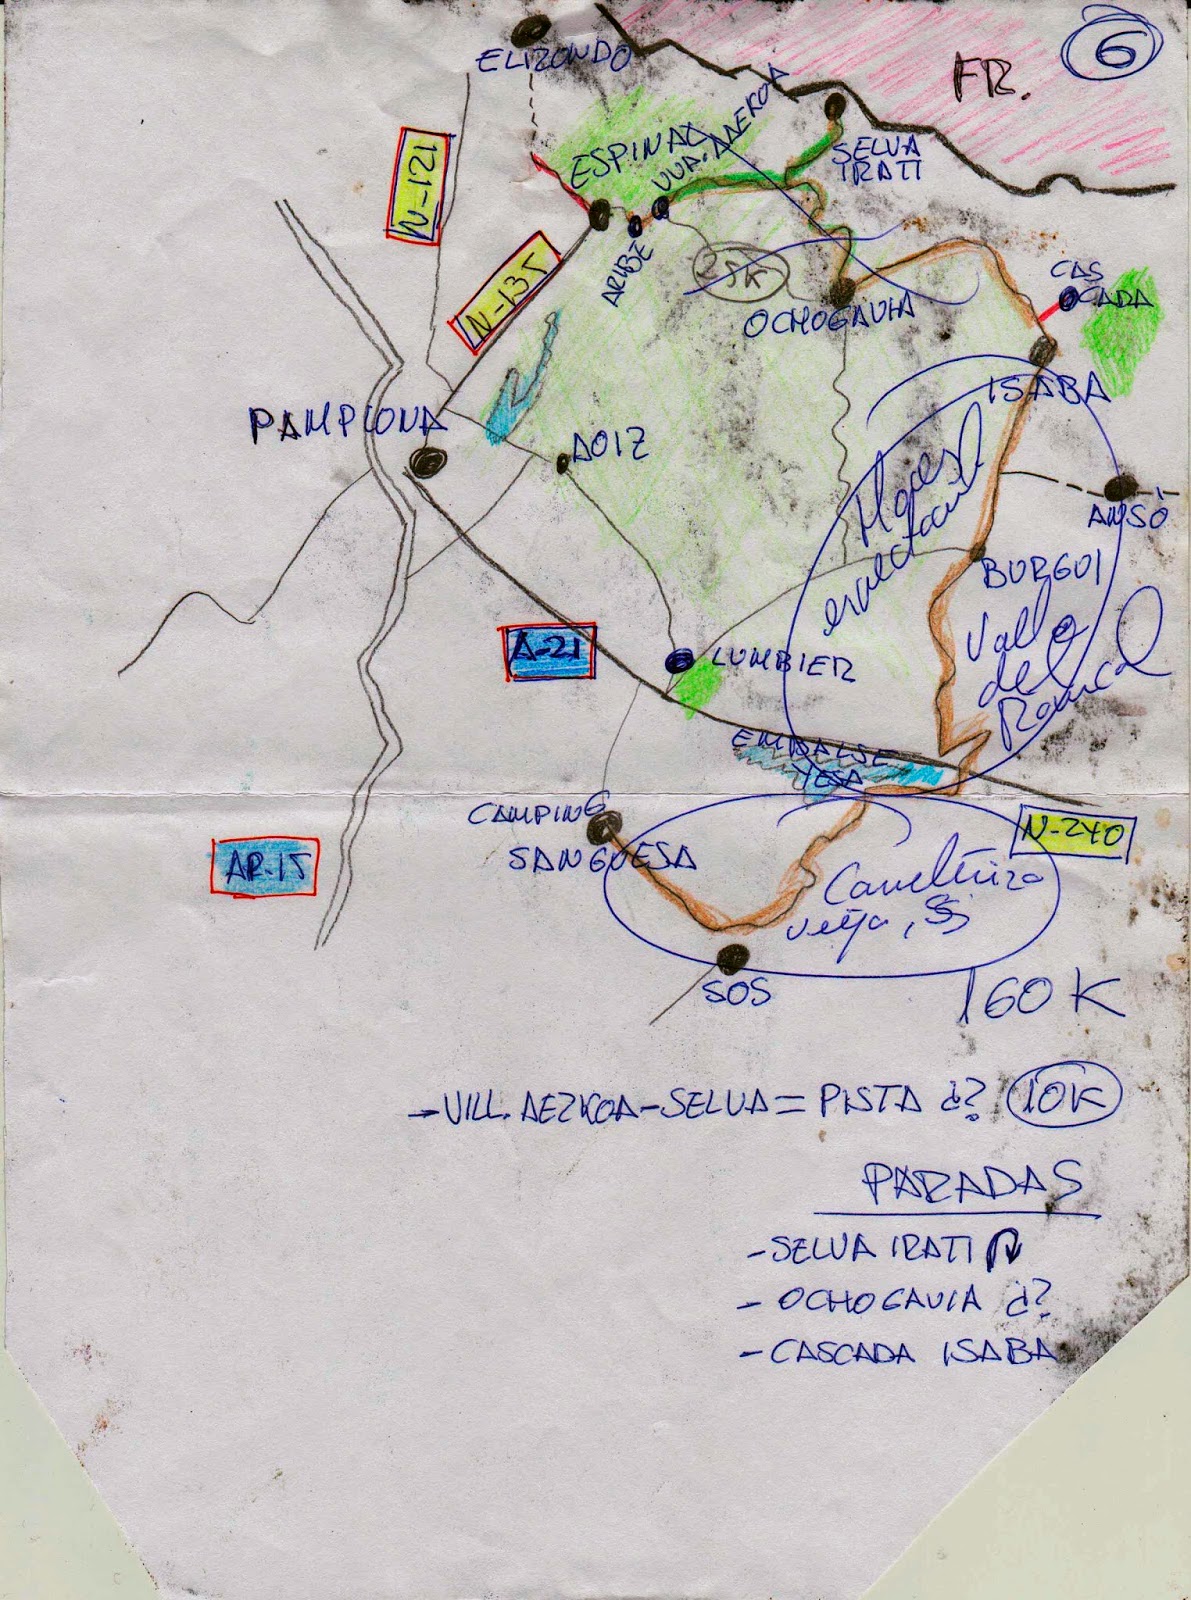 6
FR.
ELIZONDO
N-121
ESPINAL
VVA. AEKOA
SELVA
IRATI
N-135
ARIBE
25K
OCHOGAVIA
CAS
CADA
ISABA
PAMPLONA
AOIZ
ANSÓ
BURGUI
Valle
del
Roncal
A-21
LUMBIER
EMBALSE
YESA
CAMPING
SANGUESA
N-240
AR-15
vieja,
SOS
160 K
→VILL. AEZKOA-SELVA = PISTA ¿? 10K
PARADAS
-SELVA IRATI
- OCHOGAVIA ¿?
- CASCADA ISABA